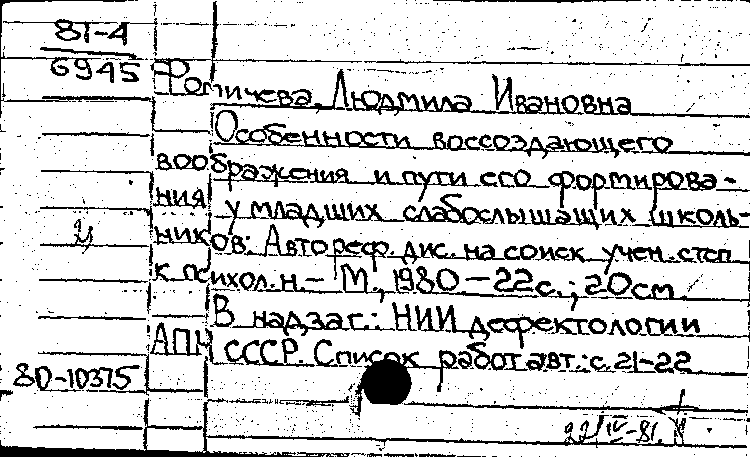 81-4
6945
Фомичева, Людмила Ивановна
Особенности воссоздающего
воображения и пути его формирова-
ния у младших слабослышащих школь-
ников: Автореф. дис. на соиск. учен. степ
к. психол. н. – М., 1980 – 22 с.; 20 см.
В надзаг.: НИИ дефектологии
АПН СССР. Список работ авт.: с. 21-22
80-10375
22/IV-81.